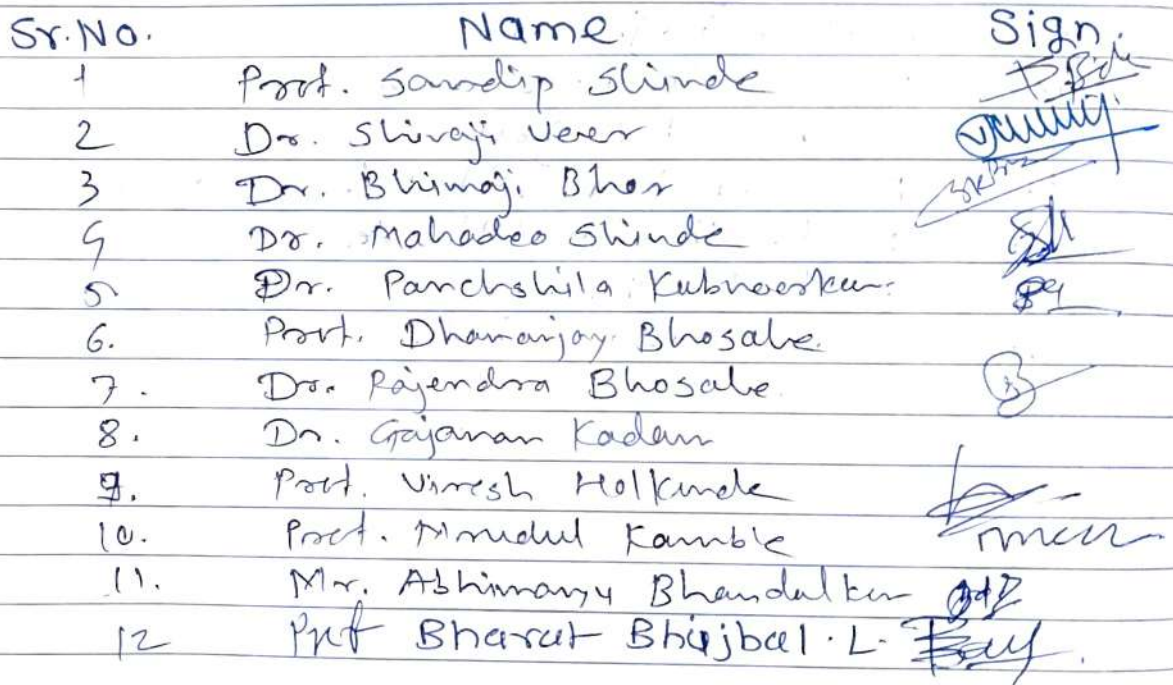 Sr.No. Name Sign.
1 Prof. Sandip Shinde
2 Dr. Shivaji Veer
3 Dr. Bhimaji Bhor
4 Dr. Mahadeo Shinde
5 Dr. Panchshila Kubnoorkar
6. Prof. Dhananjay Bhosale
7. Dr. Rajendra Bhosale
8. Dr. Gajanan Kadam
9. Prof. Viresh Holkunde
10. Prof. Mrudul Kamble
11. Mr. Abhimanyu Bhandalkar
12 Prof Bharat Bhujbal. L.